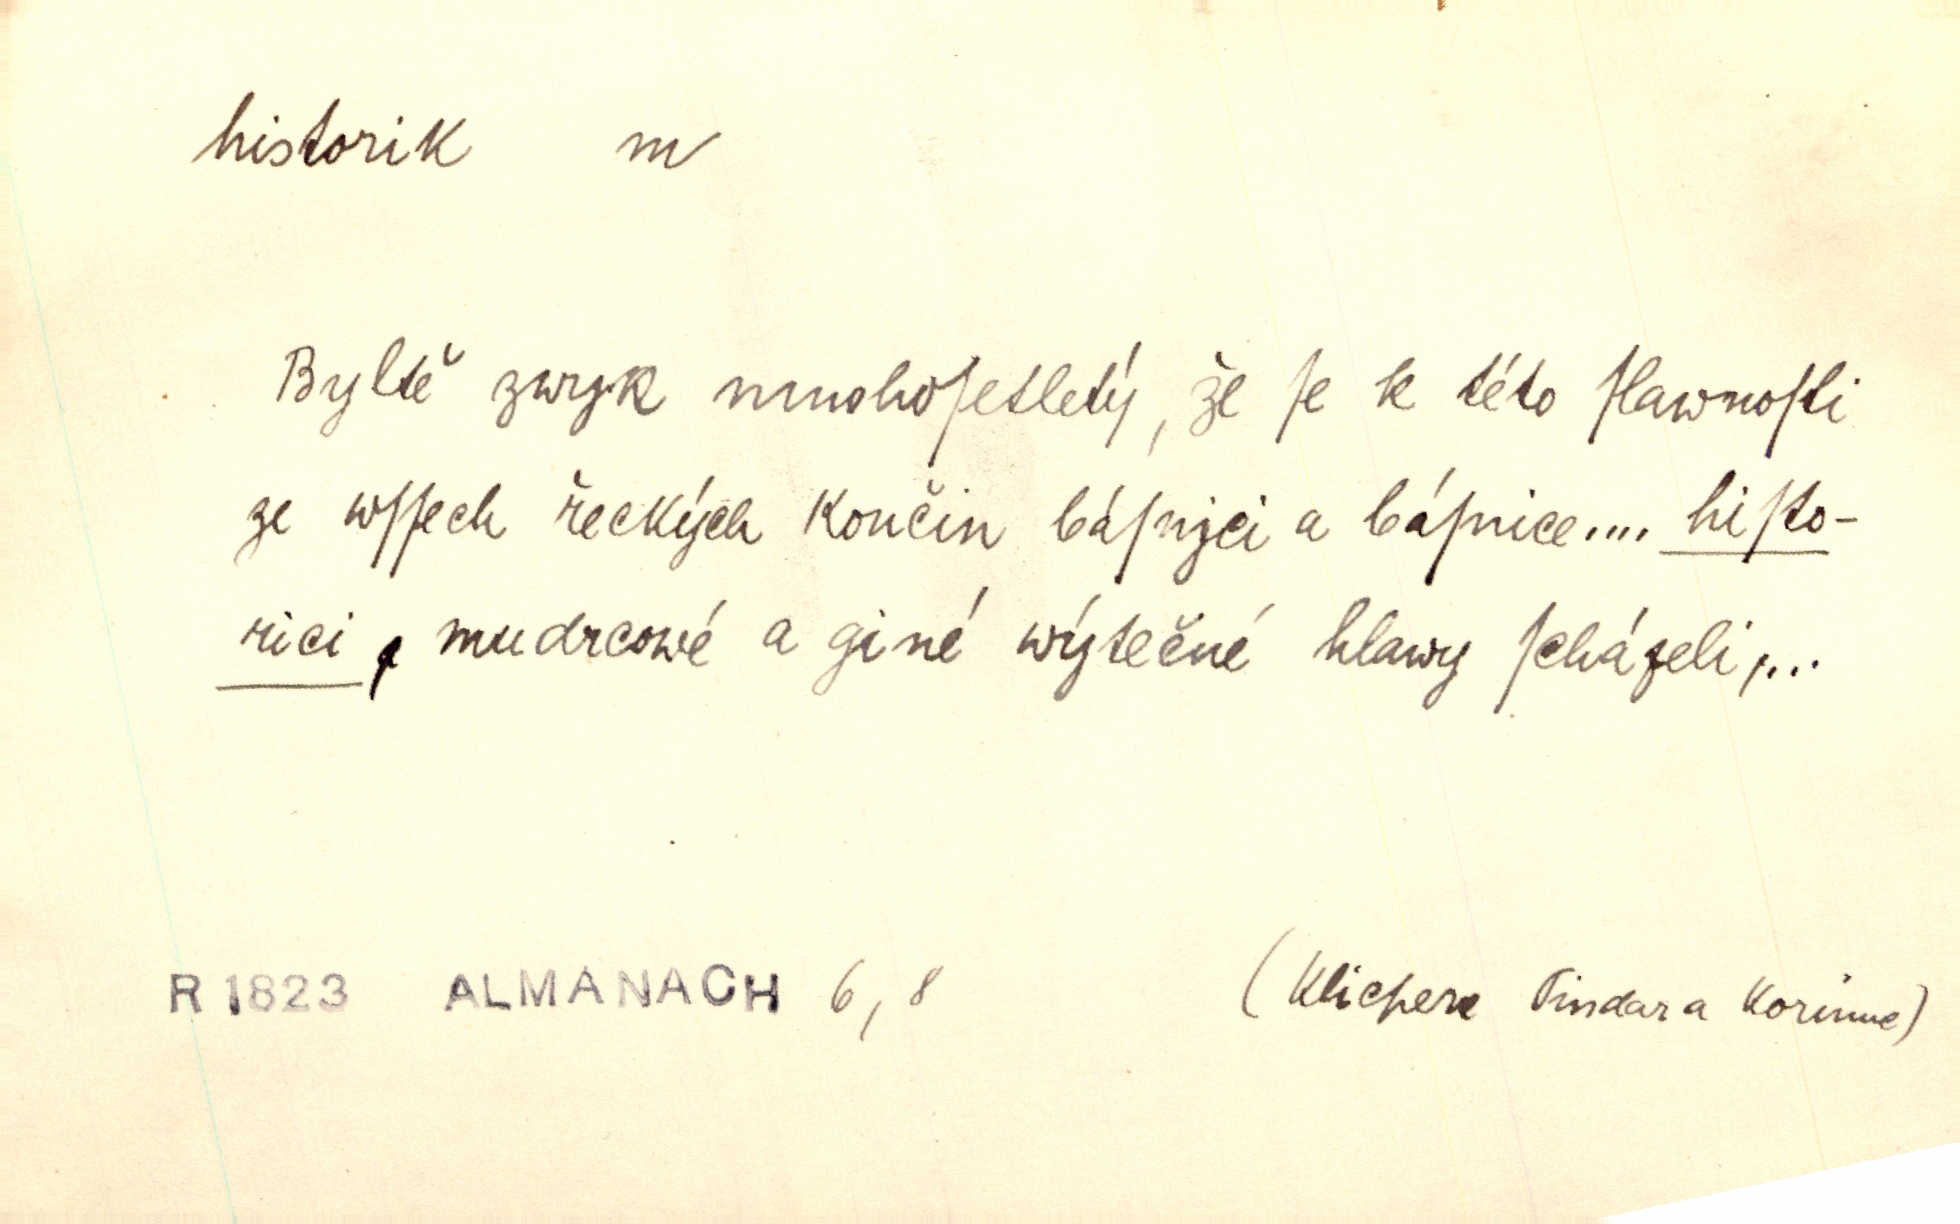 historik m
Byltě zwyk mnohoſetletý, že ſe k této ſlawnoſti
ze wſſech řeckých končin báſnjci a báſnice.... hiſto-
rici, mudrcowé a giné wýtečné hlawy ſcházeli,...
R 1823 ALMANACH 6, 8 (Klicpera Pindar a Korinna)